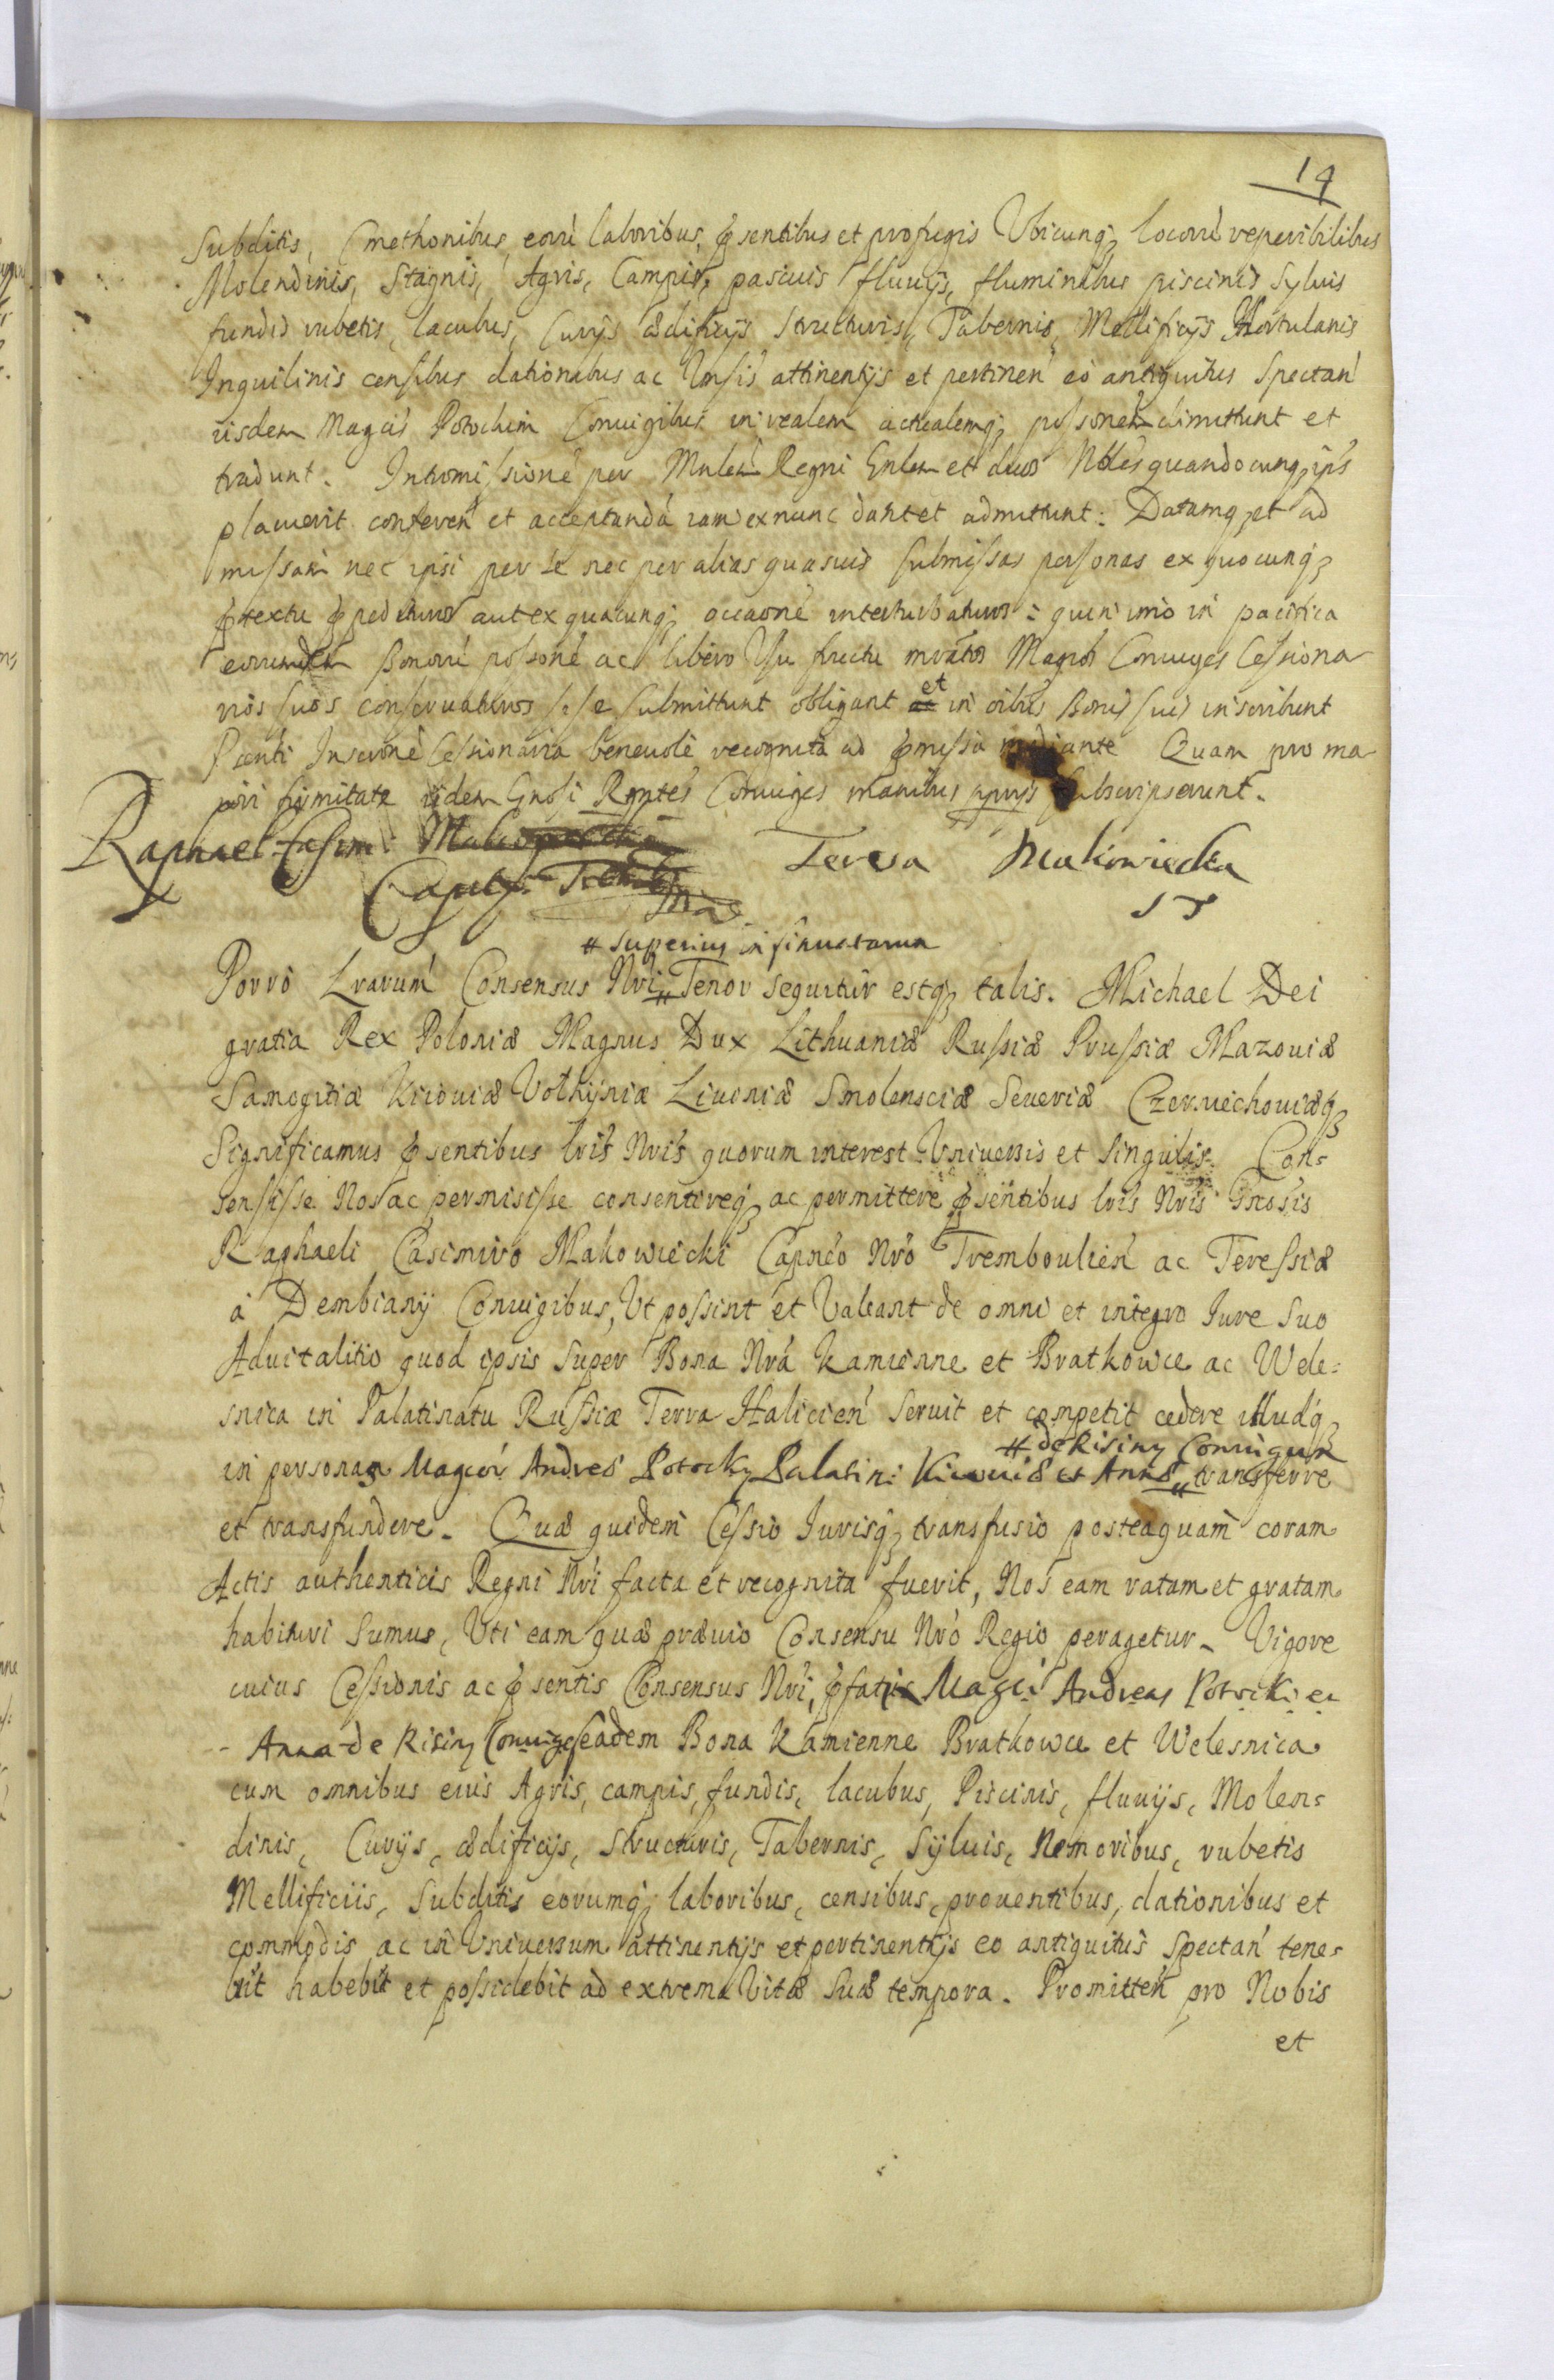 14
Subditis, Cmethonibus, eorũ laboribus, p̃sentibus et profugis Vbicunq; locorũ reperibilibus
Molendinis, Stagnis, Agris, Campis, pascuis fluuijs, fluminibus piscinis Syluis
fundis rubetis, lacubus, Curijs ædificijs Structuris, Tabernis, Mellificijs Hortulanis
Inquilinis censibus dationibus ac Vnsis attinentijs et pertinen eò antiquitus Spectan
iisdem Magcis Potockim Coniugibus in realem actualemq; possonem dimittunt et
tradunt. Intromissionẽ per Mnlem Regni Gnlem et duos Nbles quandocunq; ipis
placuerit conferen et acceptandã iam exnunc dant et admittunt. Datamq; et ad
missam nec ipsi per se nec per alias quasuis submissas personas ex quocunq;
p̃textu p̃pedituros aut ex quacunq; occaone interturbaturos: quin imò in pacifica
eorundem Bonorũ possone ac libero Vsu fructu mratos Magcos Coniuges Cessiona
rios suos conseruaturos sese submittunt obligant et in oibus Bonis suis inscribunt
Pñti Inscrone Cessionaria beneuolè recognita ad p̃missa mediante Quam pro ma
iori firmitate iidem Gnosi Rgntes Coniuges manibus pprijs subscripserunt.
Raphael Casim: Makowiecki Teresa Makowiecka
Capit: Tremb:
mp
# superius insinuatarum
Porrò Lrarum Consensus Nri " Tenor sequitur estq; talis. Michael Dei
gratia Rex Poloniæ Magnus Dux Lithuaniæ Russiæ Prussiæ Mazouiæ
Samogitiæ Kiiouiæ Volhyniæ Liuoniæ Smolensciæ Seueriæ Czerniechouiæq;
Significamus p̃sentibus lris Nris quorum interest Vniuersis et singulis. Con=
sensisse Nos ac permisisse consentireq; ac permittere p̃sentibus lris Nris Gnosis
Raphaeli Casimiro Makowiecki Capneo Nro Tremboulien ac Teressiæ
à Dembiany Coniugibus, Vt possint et Valeant de omni et integro Iure Suo
Aduitalitio quod ipsis super Bona Nra Kamienne et Bratkowce ac Wele=
snica in Palatinatu Russiæ Terra Halicien Seruit et competit cedere illudq;
# de Risiny Coniugum
in personas Magcor Andreæ Potocky Palatini Kiouiæ et Annæ " transferre
et transfundere. Quæ quidem Cessio Iurisq; transfusio posteaquam coram
Actis authenticis Regni Nri facta et recognita fuerit, Nos eam ratam et gratam
habituri Sumus, Vti eam quæ præuio Consensu Nro Regio peragetur. Vigore
cuius Cessionis ac p̃sentis Consensus Nri, p̃fati Magci Andreas Potocki et
Anna de Risiny Coniuges eadem Bona Kamienne Bratkowce et Welesnica
cum omnibus eius Agris, campis, fundis, lacubus, Piscinis, fluuijs, Molen=
dinis, Curijs, ædificijs, Structuris, Tabernis, Syluis, Nemoribus, rubetis
Mellificiis, Subditis eorumq; laboribus, censibus, prouentibus, dationibus et
commodis ac in Vniuersum attinentijs et pertinentijs eo antiquitus Spectan tene=
bit habebit et possidebit ad extrema Vitæ Suæ tempora. Promitten pro Nobis
et